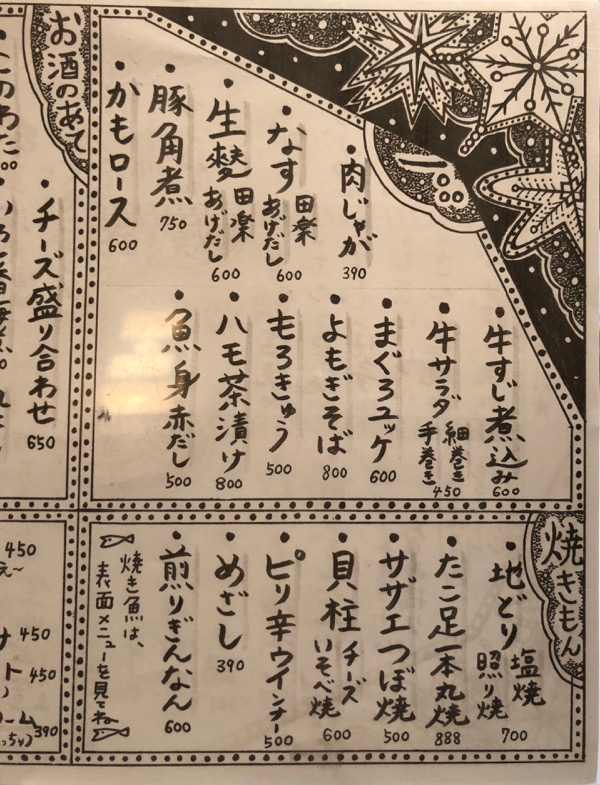 一品
肉じゃが
390
なす
田楽
あげだし
600
生麩
田楽
あげだし
600
豚角煮
750
かもロース
600
牛すじ煮込み
600
牛サラダ
細巻き
手巻き
450
まぐろユッケ
600
よもぎそば
800
もろきゅう
500
ハモ茶漬け
800
魚身赤だし
500
お酒のあて
チーズ盛り合わせ
650
このわた
焼きもん
地どり
塩焼
照り焼
700
たこ足一本丸焼
888
サザエつぼ焼
500
貝柱
チーズ
いそべ焼
600
ピリ辛ウインナー
500
めざし
390
煎りぎんなん
600
焼き魚は、
表面メニューを見てね
450
450
450
390